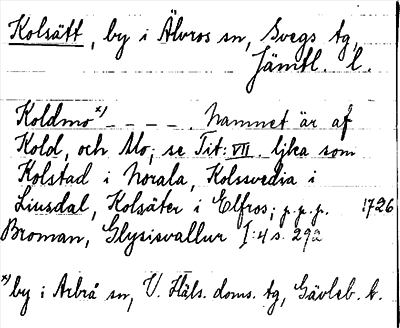 Kolsätt, by i Älvros sn, Svegs tg,
Jämtl. l.
Koldmo x) - - - - . Namnet är af
Kold, och Mo; se Tit: VII. lika som
Kolstad i Norala, Kolssvedia i
Liusdal, Kolsäter i Elfros; p.p.p. 1726
Broman, Glysisvallur I:4 s. 292
x) by i Arbrå sn, V. Häls. doms. tg, Gävleb. l.